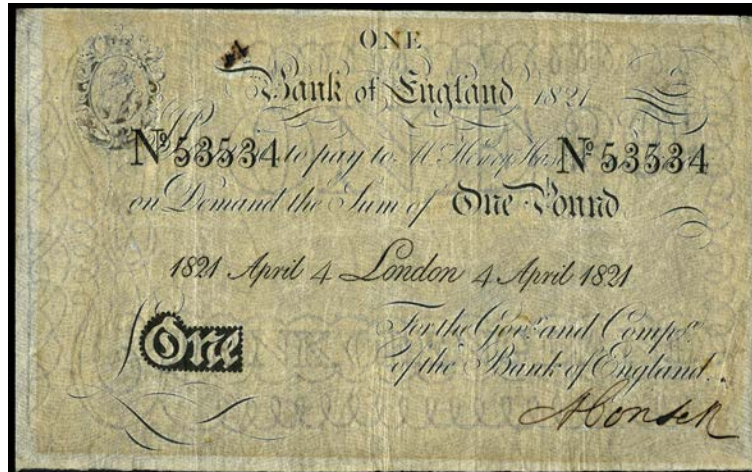 ONE
Bank of England 1821
Nº 53534 to pay to Mr. Henry Hase Nº 53534
on Demand the Sum of One Pound
1821 April 4 London 4 April 1821
One
For the Govr. and Compa.
of the Bank of England.